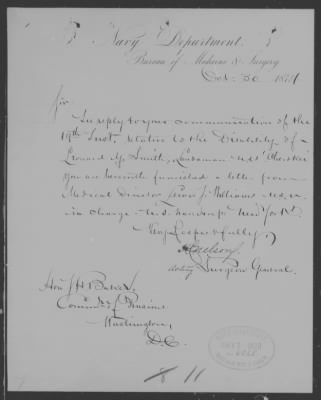 Navy Department.
Bureau of Medicine & Surgery
Oct. 30 1874
Sir
In reply to your communication of the
19th Inst. relative to the Disability of
Leonard M. Smith, Landsman U.S.S.
you are herewith furnished a letter from
Medical Director J. Williams
in charge New York.
Very Respectfully,
Acting Surgeon General.
Hon. J H Baker
Commr. of Pensions
Washington,
D.C.
8 11